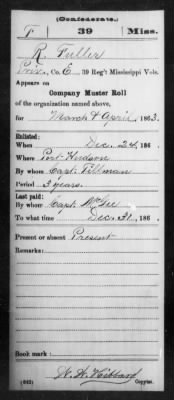 (Confederate.)
F 39 Miss.
R. Fuller
Priv., Co. E, 39 Reg't Mississippi Vols.
Appears on
Company Muster Roll
of the organization named above,
for March & April, 1863.
Enlisted:
When Dec. 24, 186 .
Where Port Hudson
By whom Capt. Tillman
Period 3 years.
Last paid:
By whom Capt. McGee
To what time Dec. 31, 186 .
Present or absent Present
Remarks:
Book mark:
W. H. Hibbard
(642) Copyist.